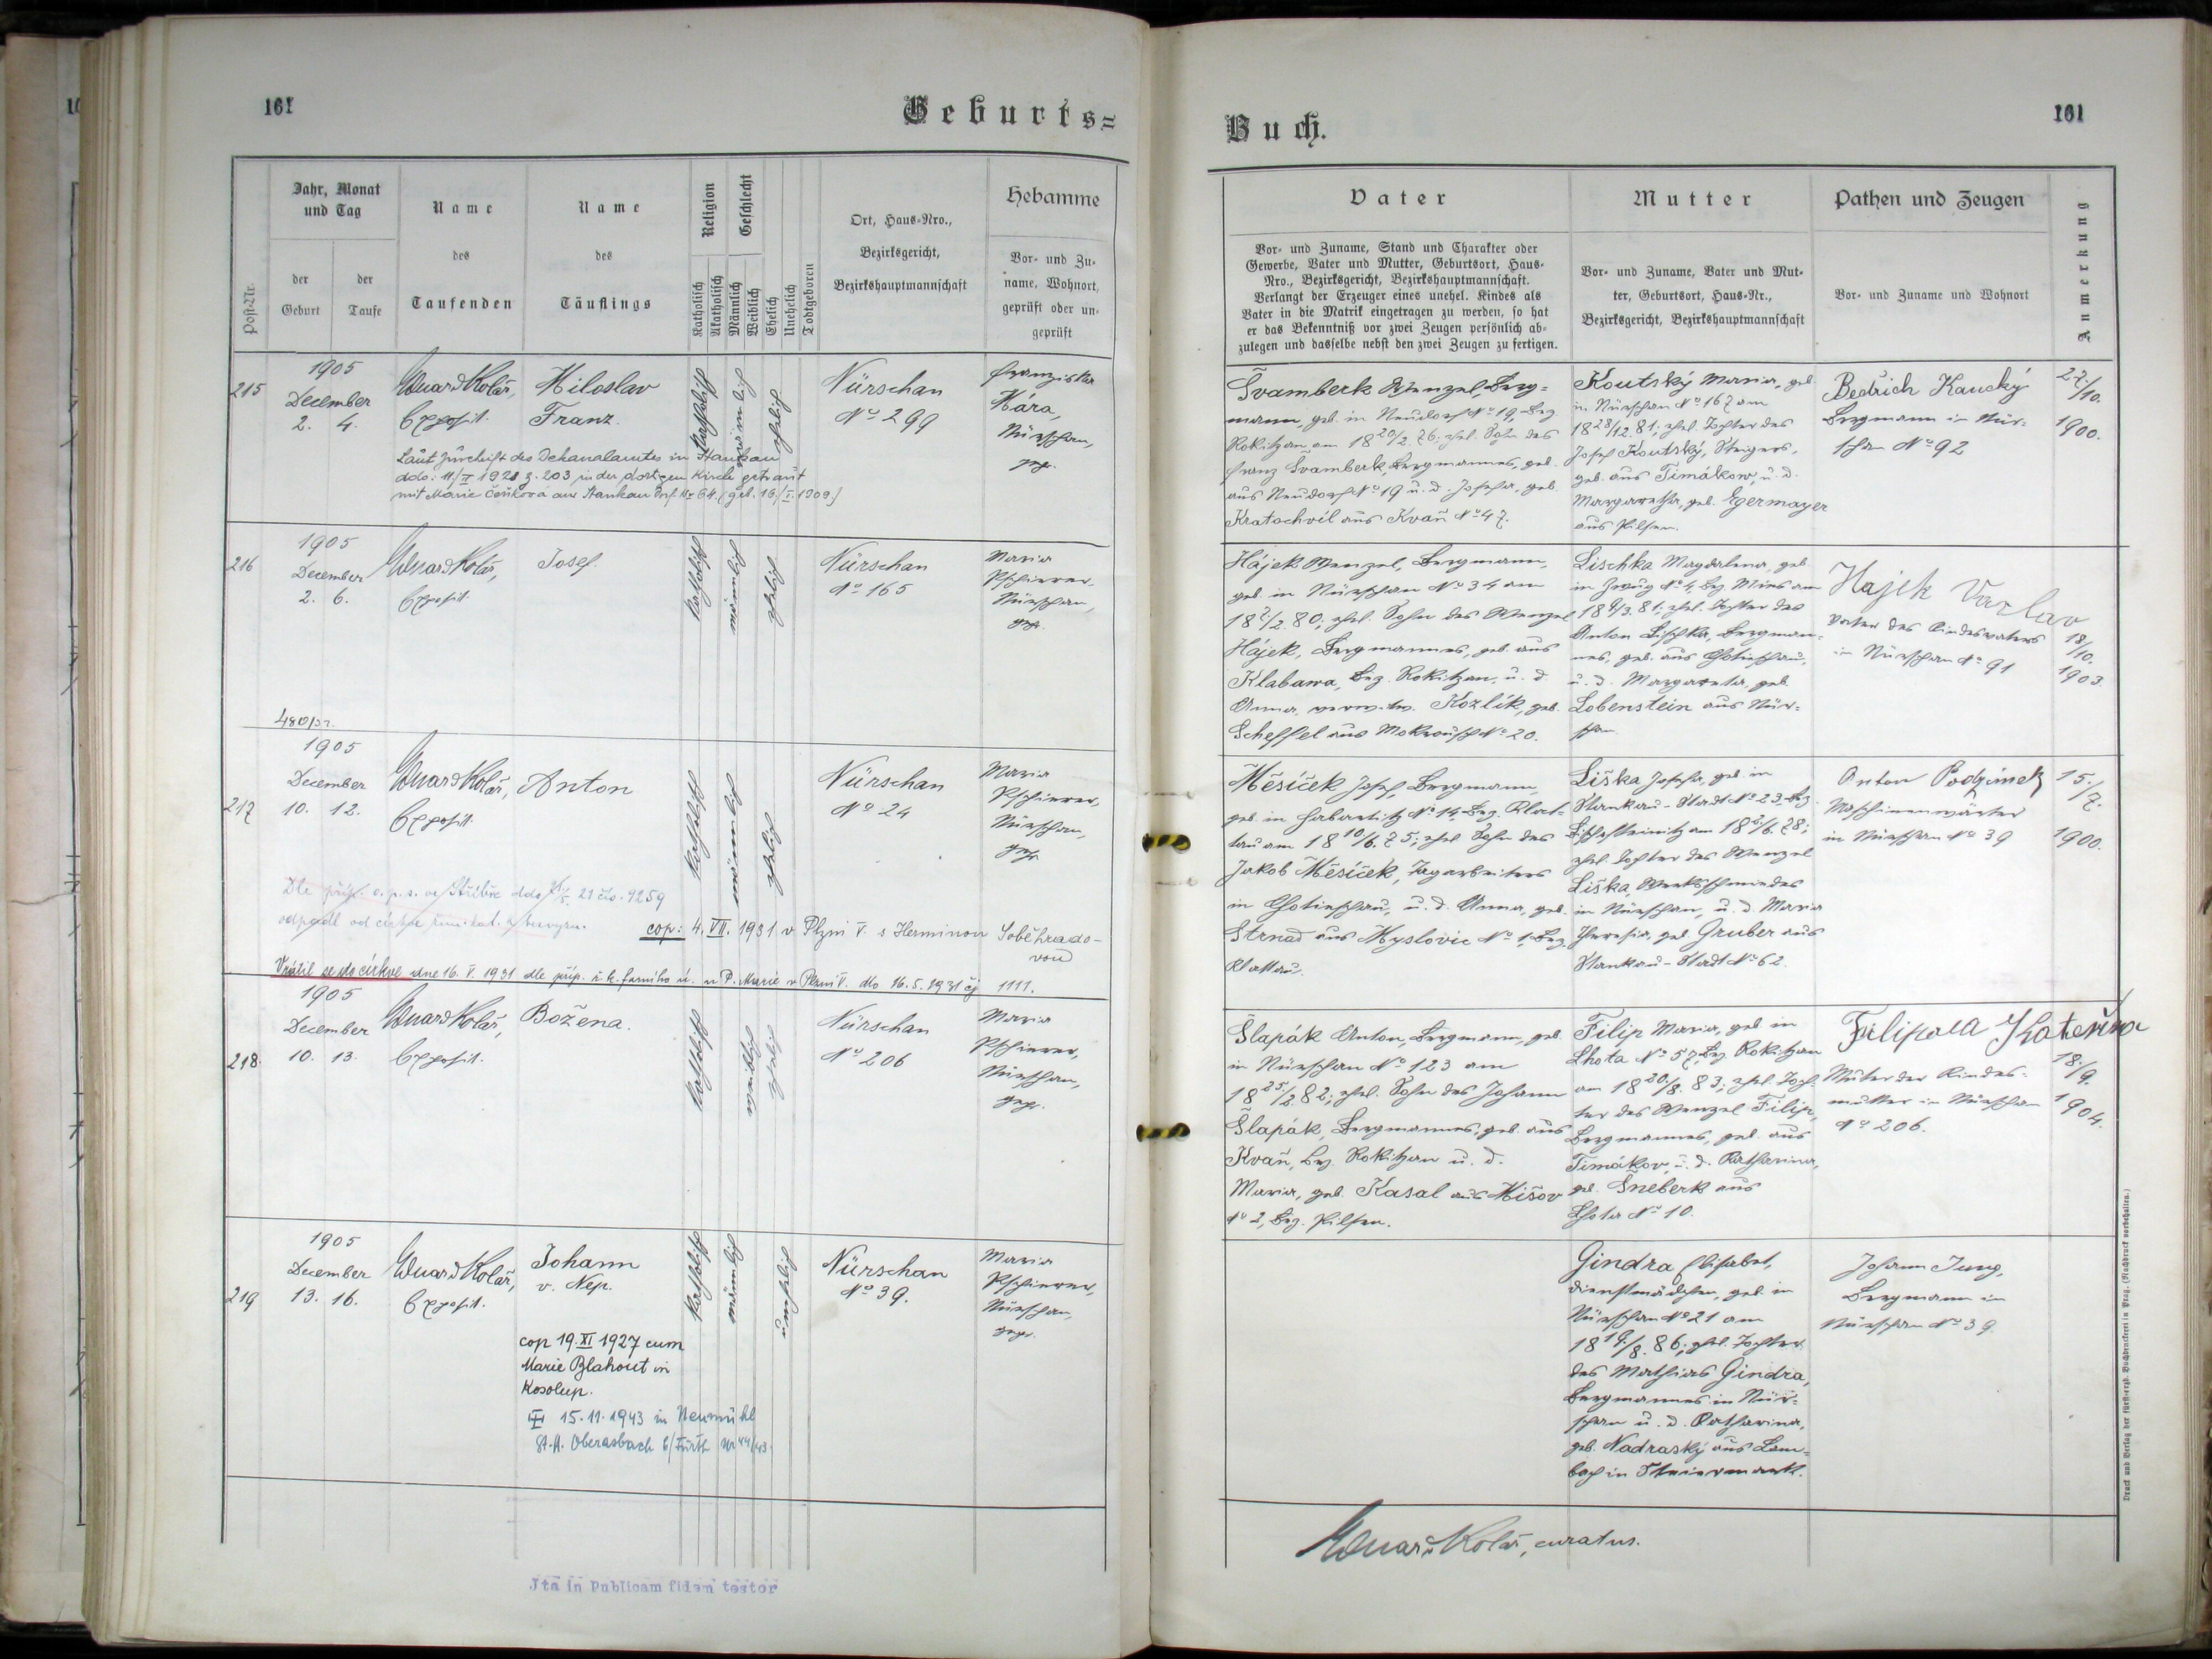 161
Geburts=
Jahr, Monat
und Tag
Name
Name
Religion
Geschlecht
Ort, Haus-Nro.,
Hebamme
des
des
Bezirksgericht,
Vor- und Zu-
der
der
name, Wohnort,
Post-Nr.
Geburt
Taufe
Taufenden
Täuflings
Katholisch
Akatholisch
Männlich
Weiblich
Ehelich
Unehelich
Todtgeboren
Bezirkshauptmannschaft
geprüft oder un-
geprüft
215
1905
December
2. 4.
Eduard Kolář,
Exposit.
Miloslav
Franz.
katholisch
männlich
ehelich
Nürschan
No 299
Franziska
Kára,
Nürschan,
gepr.
Laut Zuschrift des Dekanalamtes in Stankau
ddo: 11/II 1928 z. 203 in der dortigen Kirche getraut
mit Marie Češková aus Stankau Dorf No 64. (geb. 16./I. 1909.)
216
1905
December
2. 6.
Eduard Kolář,
Exposit.
Josef.
katholisch
männlich
ehelich
Nürschan
No 165
Maria
Pschierer,
Nürschan,
gepr.
480/37.
217
1905
December
10. 12.
Eduard Kolář,
Exposit.
Anton
katholisch
männlich
ehelich
Nürschan
No 24
Maria
Pschierer,
Nürschan,
gepr.
Dle příp. o.p.s. ve Stříbře ddo 21 čís. 9259
odpadl od církve římskokat. bezvyzn.
cop: 4. VII. 1931 v Plzni V. s Herminou Soběhrado-
vou
Vrátil se do církve dne 16. V. 1931 dle příp. ř. k. farního ú. u P. Marie v Plzni V. dto 16. 5. 1931 čj 1111.
218.
1905
December
10. 13.
Eduard Kolář,
Exposit.
Božena.
katholisch
weiblich
ehelich
Nürschan
No 206
Maria
Pschierer,
Nürschan,
gepr.
219
1905
December
13. 16.
Eduard Kolář,
Exposit.
Johann
v. Nep.
katholisch
männlich
unehelich
Nürschan
No 39.
Maria
Pschierer,
Nürschan,
gepr.
cop 19. XI 1927 cum
Marie Blahout in
Kosolup.
15.11.1943 in Neumühl
St.A. Oberasbach b/Fürth Nr 44/43
Ita in Publicam fidem testor
Buch.
161
Vater
Mutter
Pathen und Zeugen
Anmerkung
Vor- und Zuname, Stand und Charakter oder
Gewerbe, Vater und Mutter, Geburtsort, Haus-
Nro., Bezirksgericht, Bezirkshauptmannschaft.
Verlangt der Erzeuger eines unehel. Kindes als
Vater in die Matrik eingetragen zu werden, so hat
er das Bekenntniß vor zwei Zeugen persönlich ab-
zulegen und dasselbe nebst den zwei Zeugen zu fertigen.
Vor- und Zuname, Vater und Mut-
ter, Geburtsort, Haus-Nr.,
Bezirksgericht, Bezirkshauptmannschaft
Vor- und Zuname und Wohnort
Švamberk Wenzel, Berg=
mann, geb. in Neudorf No 19, Bez.
Rokitzan am 18 20/2. 76; ehel. Sohn des
Franz Švamberk, Bergmannes, geb.
aus Neudorf No 19 u. d. Josefa, geb.
Kratochvil aus Kvaň No 47.
Koutský Maria, geb.
in Nürschan No 167 am
18 28/12. 81; ehel. Tochter des
Josef Koutský, Steigers,
geb. aus Timákow, u. d.
Margaretha, geb. Egermayer
aus Pilsen.
Bedřich Kaucký
Bergmann in Nür-
schan No 92
27./10.
1900.
Hájek Wenzel, Bergmann,
geb. in Nürschan No 34 am
18 7/2. 80; ehel. Sohn des Wenzel
Hájek, Bergmannes, geb. aus
Klabawa, Bez. Rokitzan, u. d.
Anna, verw. Kozlík, geb.
Scheffel aus Mokrousch No 20.
Lischka Magdalena, geb.
in Zwug No 4, Bez. Mies am
18 4/3. 81; ehel. Tochter des
Anton Lischka, Bergman-
nes, geb. aus Chotieschau,
u. d. Margareta, geb.
Lobenstein aus Nür=
schan.
Hajek Vazlav
Vater des Kindesvaters
in Nürschan No 91
18/10.
1903.
Měsíček Josef, Bergmann,
geb. in Habartitz No 14, Bez. Klat-
tau am 18 10/6. 75; ehel. Sohn des
Jakob Měsíček, Tagarbeiters
in Chotieschau, u. d. Anna, geb.
Strnad aus Myslovic No 1, Bez.
Klattau.
Liška Josefa, geb. in
Stankau-Stadt No 23, Bez.
Bischofteinitz am 18 /6. 78;
ehel. Tochter des Wenzel
Liška, Werksschmiedes
in Nürschan, u. d. Maria
Theresia, geb. Gruber aus
Stankau-Stadt No 62.
Anton Podzimek
Maschinenwärter
in Nürschan No 39
15./7.
1900.
Šlapák Anton, Bergmann, geb.
in Nürschan No 123 am
18 25/2 82; ehel. Sohn des Johann
Šlapák, Bergmannes, geb. aus
Kvaň, Bez. Rokitzan u. d.
Maria, geb. Kasal aus Mišov
No 2, Bez. Pilsen.
Filip Maria, geb. in
Lhota No 57, Bez. Rokitzan
am 18 20/8. 83; ehel. Toch-
ter des Wenzel Filip,
Bergmannes, geb. aus
Timákov, u. d. Katharina,
geb. Šneberk aus
Lhota No 10.
Filipova Kateřina
Mutter der Kindes-
mutter in Nürschan
No 206.
18./9.
1904.
Gindra Elisabet,
Dienstmädchen, geb. in
Nürschan No 21 am
18 19/8. 86; ehel. Tochter
des Mathias Gindra,
Bergmannes in Nür-
schan u. d. Katharina,
geb. Nadraský aus Lem-
bach in Steiermark.
Johann Jung,
Bergmann in
Nürschan No 39.
Eduard Kolář, curatus.
Druck und Verlag der fürst-erzb. Buchdruckerei in Prag. (Nachdruck vorbehalten.)